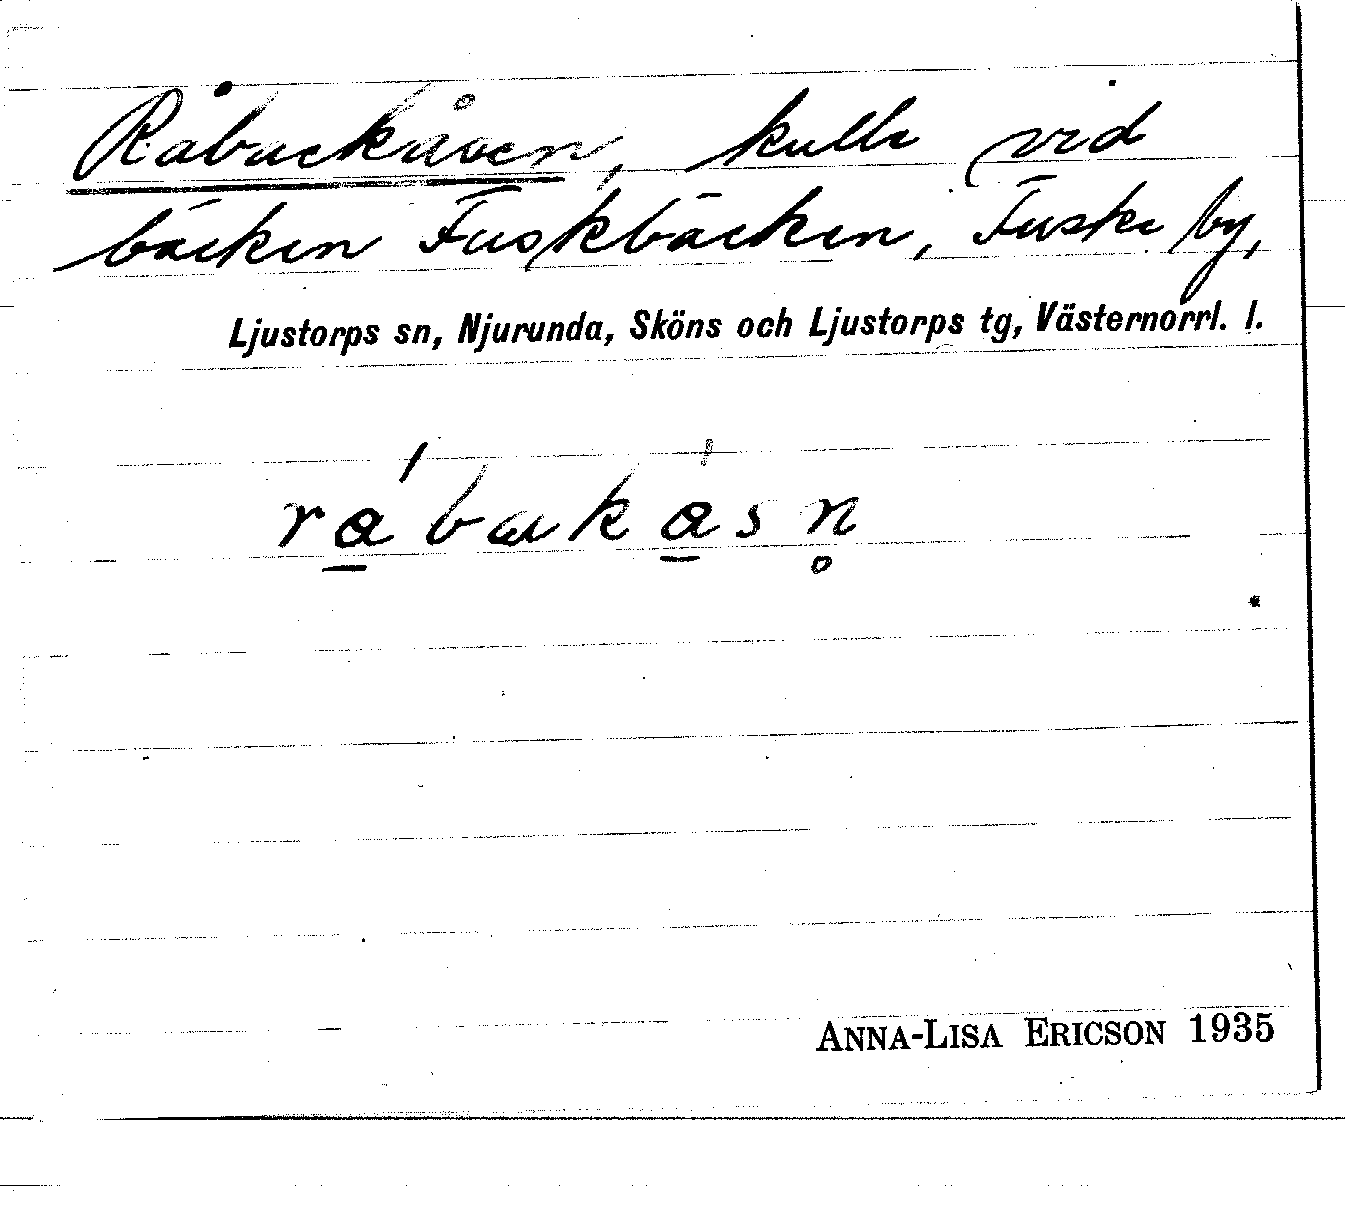 Råbackåsen, kulle vid
bäcken Fuskbäcken, Fuske by,
Ljustorps sn, Njurunda, Sköns och Ljustorps tg, Västernorrl. l.
ANNA-LISA ERICSON 1935